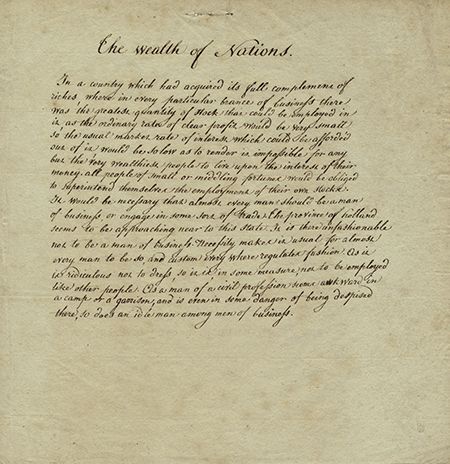 The Wealth of Nations.
In a country which had acquired its full complement of
riches, where in every particular branch of business there
was the greatest quantity of stock that could be employed in
it as the ordinary rate of clear profit would be very small
so the usual market rate of interest which could be afforded
out of it would be so low as to render it impossible for any
but the very wealthiest people to live upon the interest of their
money. all people of small or middling fortunes would be obliged
to superintend themselves the employment of their own stocks.
It would be necessary that almost every man should be a man
of business or engage in some sort of trade. The province of Holland
seems to be approaching near to this state. It is there unfashionable
not to be a man of business. Necessity makes it usual for almost
every man to be so, and custom every where regulates fashion. As it
is ridiculous not to dress so is it in some measure, not to be employed
like other people. As a man of a civil profession seems awkward in
a camp or a garrison, and is even in some danger of being despised
there, so does an idle man among men of business.